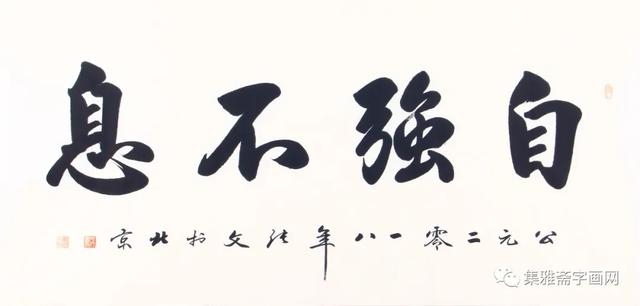 自強不息
公元二零一八年 文书北京
集雅斋字画网